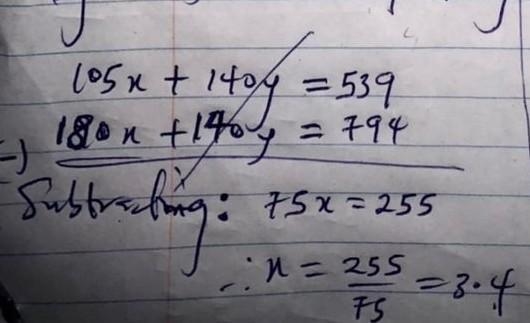 105x + 140y = 539
180x + 140y = 794
(-)
Subtracting: 75x = 255
∴ x = 255/75 = 3.4